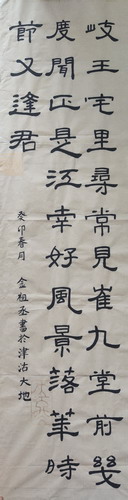 岐王宅里尋常見崔九堂前幾
度聞正是江南好風景落華時
節又逢君
癸卯春月 金祖丞書於津沽大地